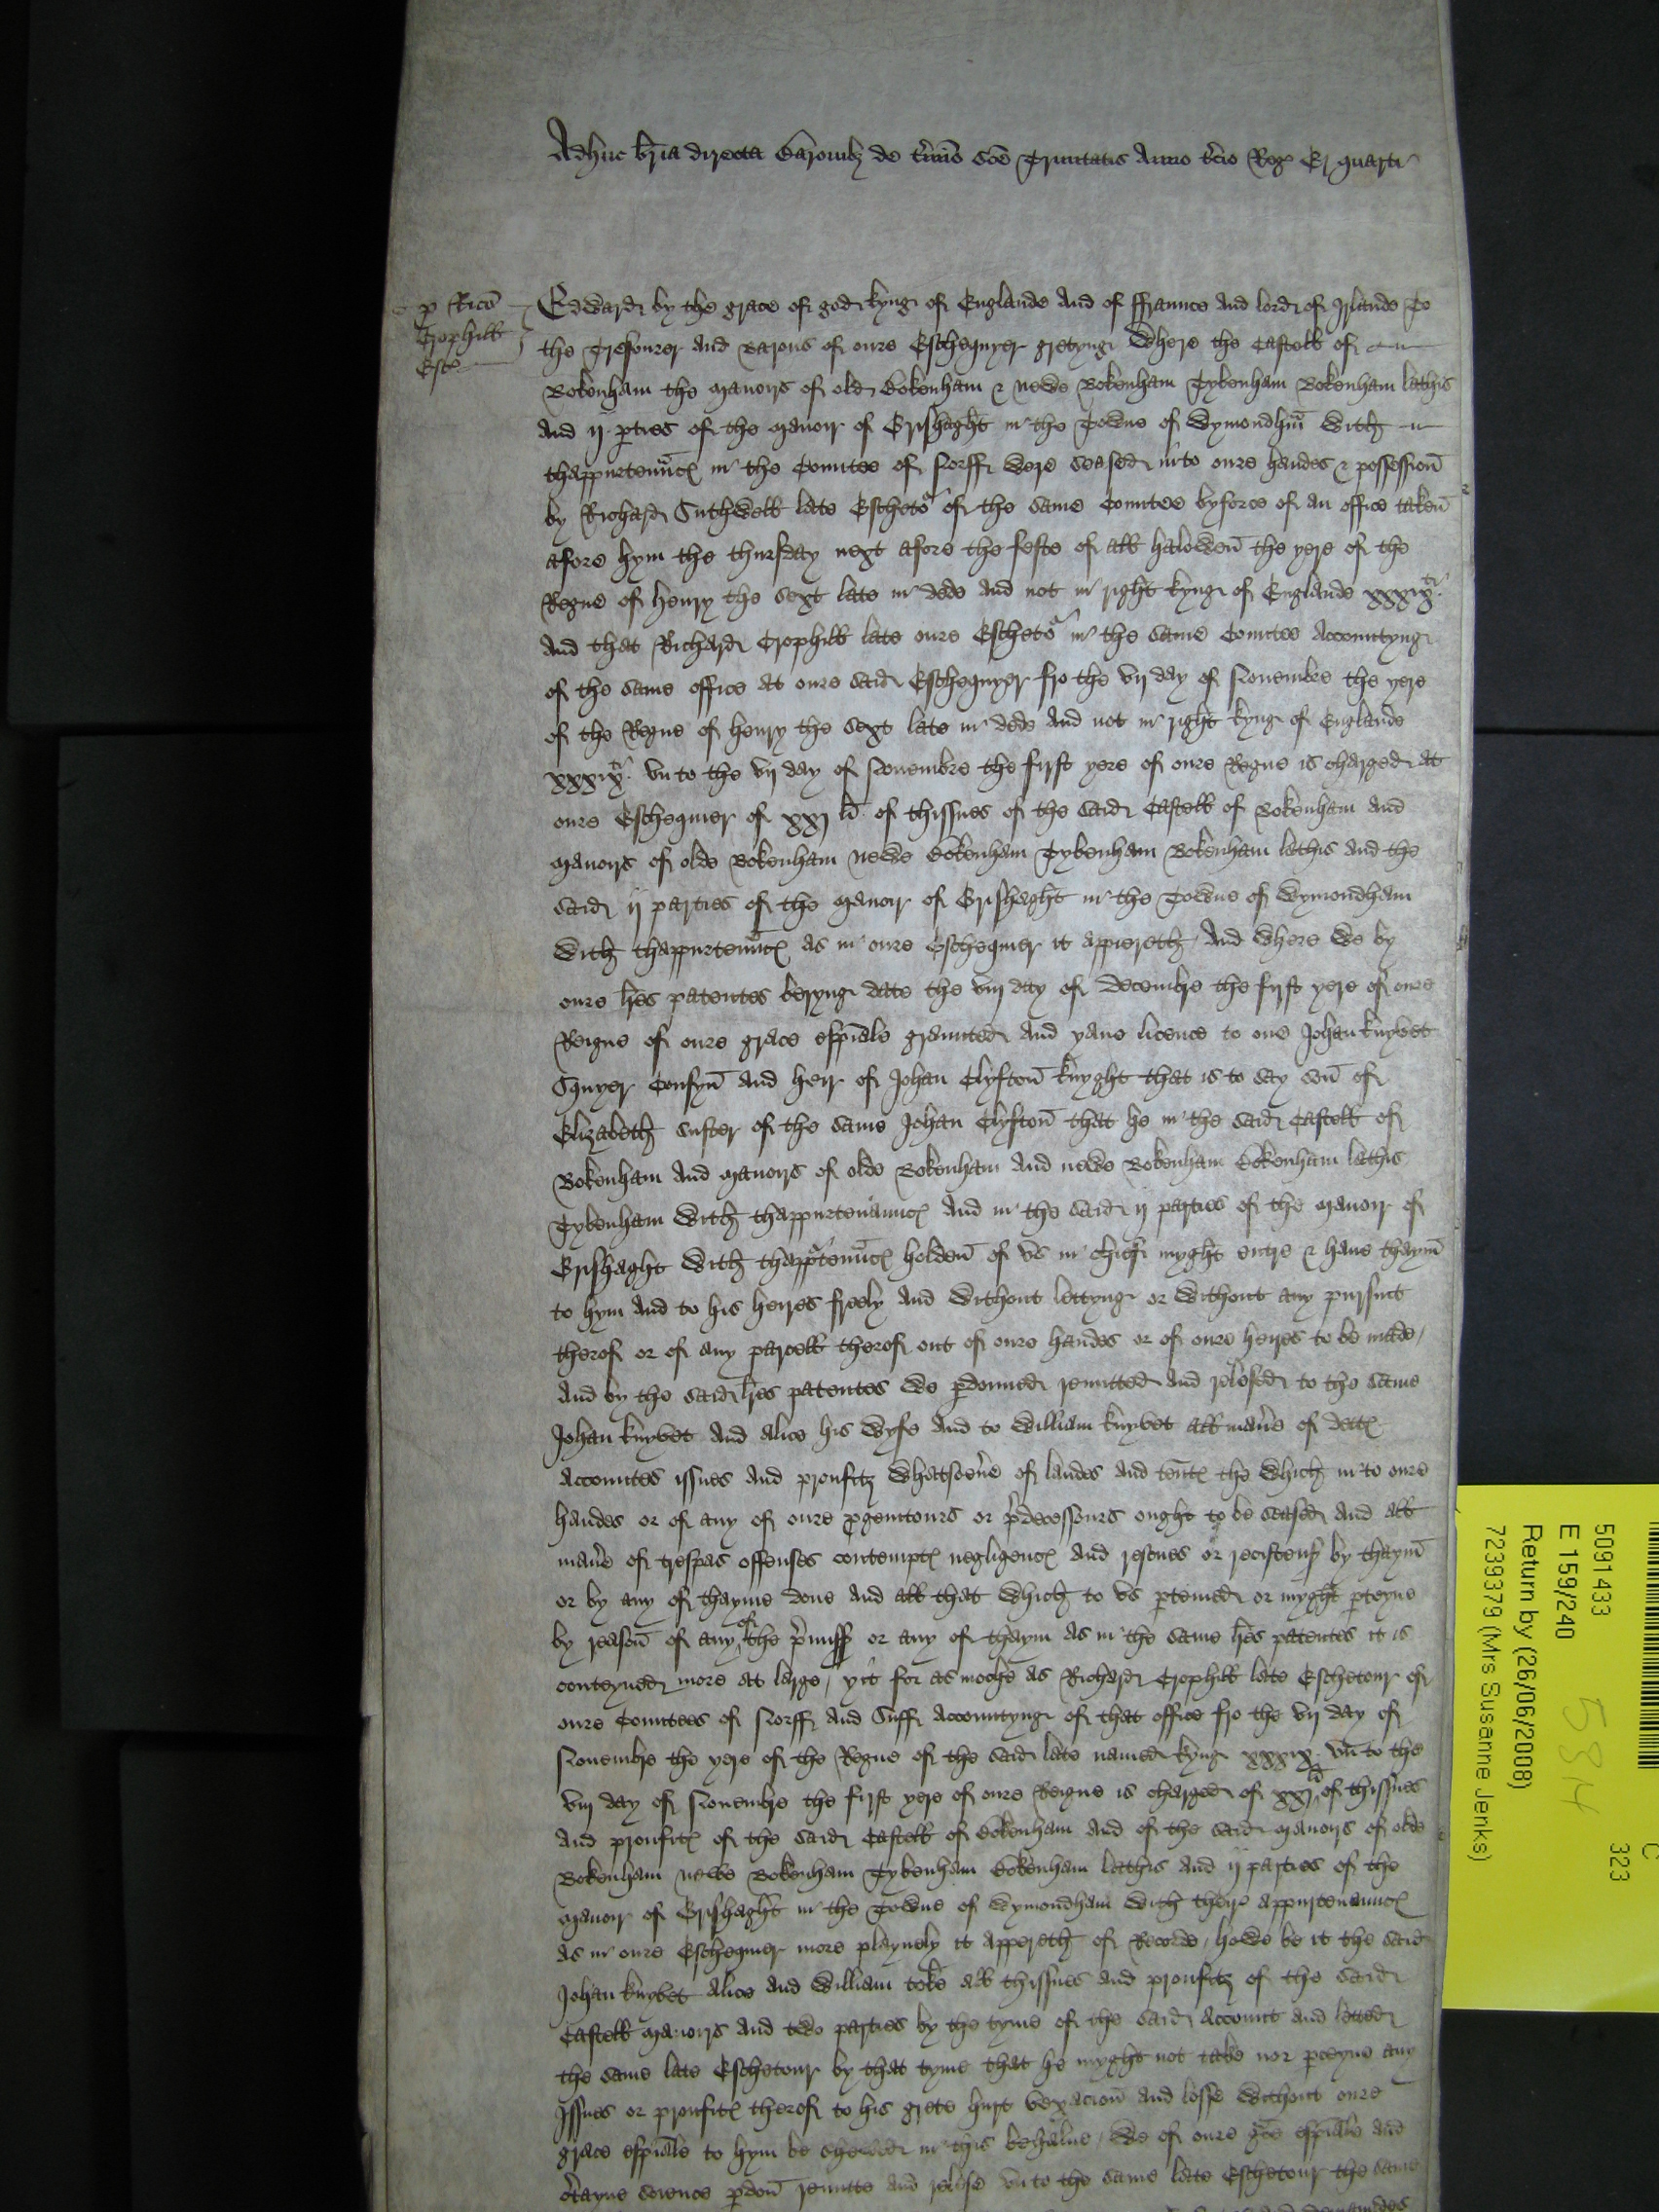 Adhuc bria directa Baronibz de tmio sce Trinitatis Anno tcio Reg E quarti
p Rico
Crophill
Esc
Edward by the grace of god kyng of Englande And of ffraunce And lord of Irlande To
the Tresourer And Barons of oure Eschequyer gretyng Where the Castell of
Bokenham the Manoirs of old Bokenham & newe Bokenham Tybenham Bokenham lathis
And ij pties of the Manoir of Grishaght in the Towne of Wymondhm With
thappurtenncz in the Comitee of Norff Were Seased in to oure handes & possession
by Richard Suthwell late Eschetor of the Same Comitee by force of an office taken
afore hym the thursday next afore the feste of all halowen the yere of the
Regne of henry the Sext late in dede And not in right kyng of Englande xxxix
And that Richard Crophill late oure Eschetor in the Same Comitee Accomptyng
of the Same office At oure Said Eschequyer fro the vij day of Novembre the yere
of the Regne of henry the Sext late in dede And not in right kyng of Englande
xxxix vn to the vij day of Novembre the first yere of oure Regne is charged at
oure Eschequier of xxj li of thissues of the Said Castell of Bokenham And
Manoirs of olde Bokenham Newe Bokenham Tybenham Bokenham lathis And the
Said ij parties of the Manoir of Grishaght in the Towne of Wymondham
With thappurtenncz As in oure Eschequier it appiereth And Where We by
oure lres patentes beryng date the viij day of Decembre the first yere of oure
Reigne of oure grace espiale graunted And yave licence to one Johan knyvet
Squyer Cousyn And heir of Johan Clyfton knyght that is to Say Son of
Elizabeth Suster of the Same Johan Clyfton that he in the Said Castell of
Bokenham And Manoirs of olde Bokenham And newe Bokenham Bokenham lathis
Tybenham With thappurtenauncz And in the Said ij parties of the Manoir of
Grishaght With thapptenncz holden of vs in chief myght entre & have thaym
to hym And to his heires freely And Without lettyng or Without any pursuit
therof or of any parcell therof out of oure handes or of oure heires to be made /
And by the Said lres patentes We pdoned remitted And relesed to the Same
Johan knyvet And Alice his Wyfe And to William knyvet all mane of dettz
Accomptes issues And proufitz Whatsoeve of landes And tentz the Which in to oure
handes or of any of oure pgenitours or pdecessours ought to be Seased And all
mane of trespas offenses contemptz negligencz And rescues or recistens by thaym
or by any of thayme done And all that Which to vs pteined or myght pteyne
by reason of any of the pmiss or any of thaym As in the Same lres patentes it is
conteyned more at large / yit for as moche as Richard Crophill late Eschetour of
oure Comitees of Norff And Suff Accomptyng of that office fro the vij day of
Novembre the yere of the Regne of the Said late named kyng xxxix vn to the
viij day of Novembre the first yere of oure Reigne is charged of xxj li of thissues
And proufitz of the Said Castell of Bokenham And of the Said Manoirs of olde
Bokenham newe Bokenham Tybenham Bokenham lathis And ij parties of the
Manoir of Grishaght in the Towne of Wymondham With their appurtenauncz
As in oure Eschequier more playnely it appereth of Recorde / howe be it the Said
Johan knyvet Alice And William toke all thissues And proufitz of the Said
Castell Manoirs And two parties by the tyme of the Said Accompt And letted
the Same late Eschetour by that tyme that he myght not take nor pceyve any
Issues or proufitz therof to his grete hurt vexacion And losse Without oure
grace espiale to hym be shewed in this behalve / We of oure gce espiale And
ctayne Science pdon remitte And relese vn to the Same late Eschetour the Same
5091433
E 159/240
Return by (26/06/2008)
7239379 (Mrs Susanne Jenks)
C
323
584